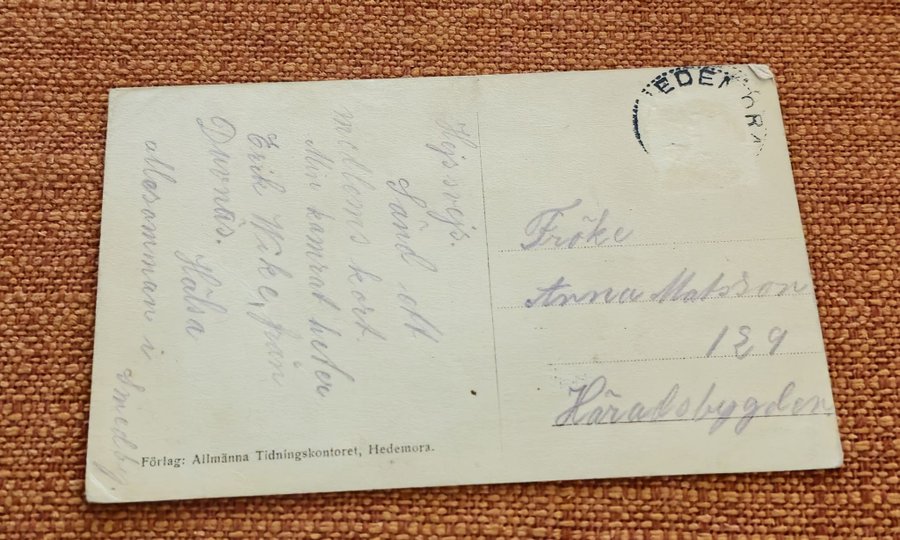 Hejsvejs.
Sänd ett
medlems kort.
Min kamrat heter
Erik Wike, från
Dvonäs. Hälsa
allesamman i Smedby.
EDEMORA
Fröke
Anna Matsson
129
Häradsbygden
Förlag: Allmänna Tidningskontoret, Hedemora.